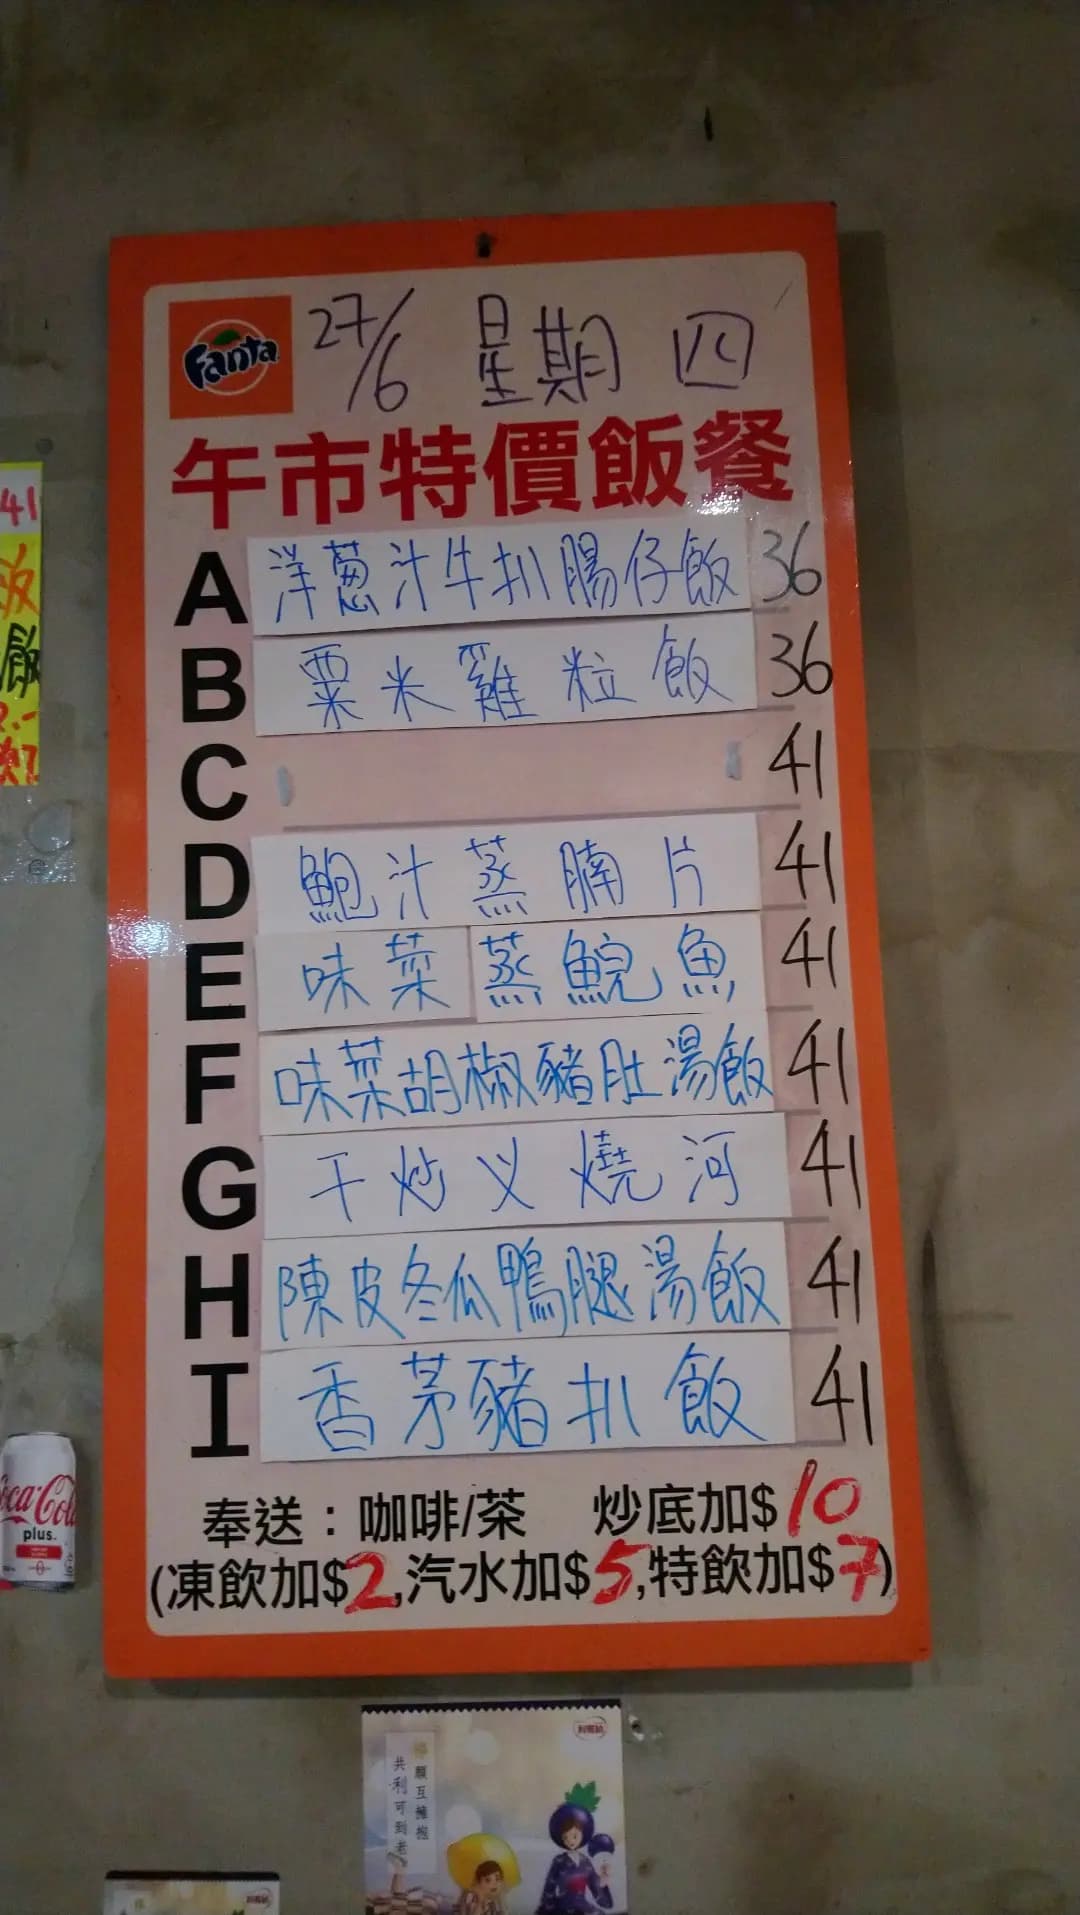 Fanta
27/6 星期四
午市特價飯餐
A 洋葱汁牛扒腸仔飯 36
B 粟米雞粒飯 36
C 41
D 鮑汁蒸腩片 41
E 味菜蒸鯇魚 41
F 味菜胡椒豬肚湯飯 41
G 干炒义燒河 41
H 陳皮冬瓜鴨腿湯飯 41
I 香茅豬扒飯 41
奉送：咖啡/茶 炒底加$10
(凍飲加$2,汽水加$5,特飲加$7)
41
飯
Coca-Cola
plus
願互擁抱
共利可到老